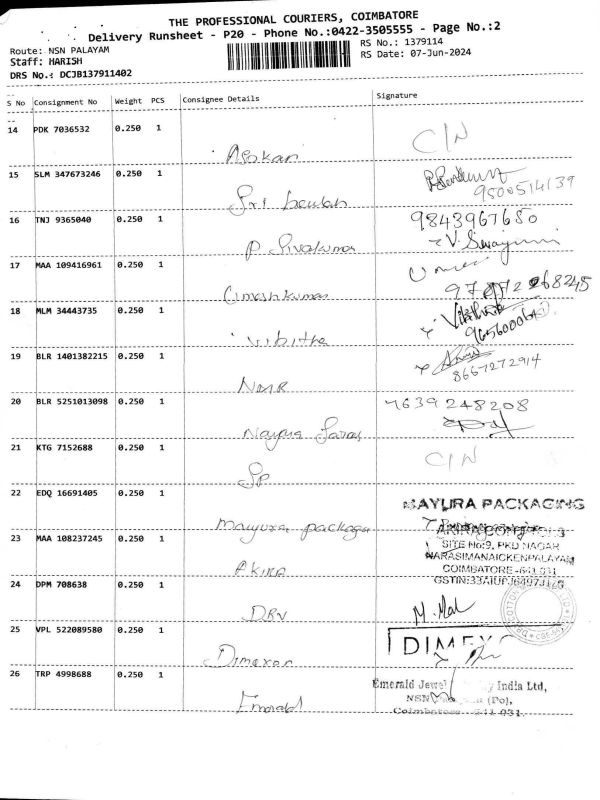 THE PROFESSIONAL COURIERS, COIMBATORE
Delivery Runsheet - P20 - Phone No.:0422-3505555 - Page No.:2
Route: NSN PALAYAM
RS No.: 1379114
Staff: HARISH
RS Date: 07-Jun-2024
DRS No.: DCJB137911402
S No Consignment No Weight PCS Consignee Details Signature
14 PDK 7036532 0.250 1
C/N
Asokan
15 SLM 347673246 0.250 1
9500514139
Sri
16 TNJ 9365040 0.250 1
9843967680
P. Sivakumar
17 MAA 109416961 0.250 1
Umeshkumar
18 MLM 34443735 0.250 1
Vibitha
19 BLR 1401382215 0.250 1
8667272914
NMR
20 BLR 5251013098 0.250 1
7639248208
Nayara
21 KTG 7152688 0.250 1
C/N
SP
22 EDQ 16691405 0.250 1
MAYURA PACKAGING
Mayura package
23 MAA 108237245 0.250 1
SITE No:9, PKD NAGAR
NARASIMANAICKENPALAYAM
COIMBATORE -641 031
Akira
24 DPM 708638 0.250 1
DRV
25 VPL 522089580 0.250 1
DIMEX
Dimexon
26 TRP 4998688 0.250 1
Emerald Jewel India Ltd,
NSN (Po),
Coimbatore 641 031.
Emerald